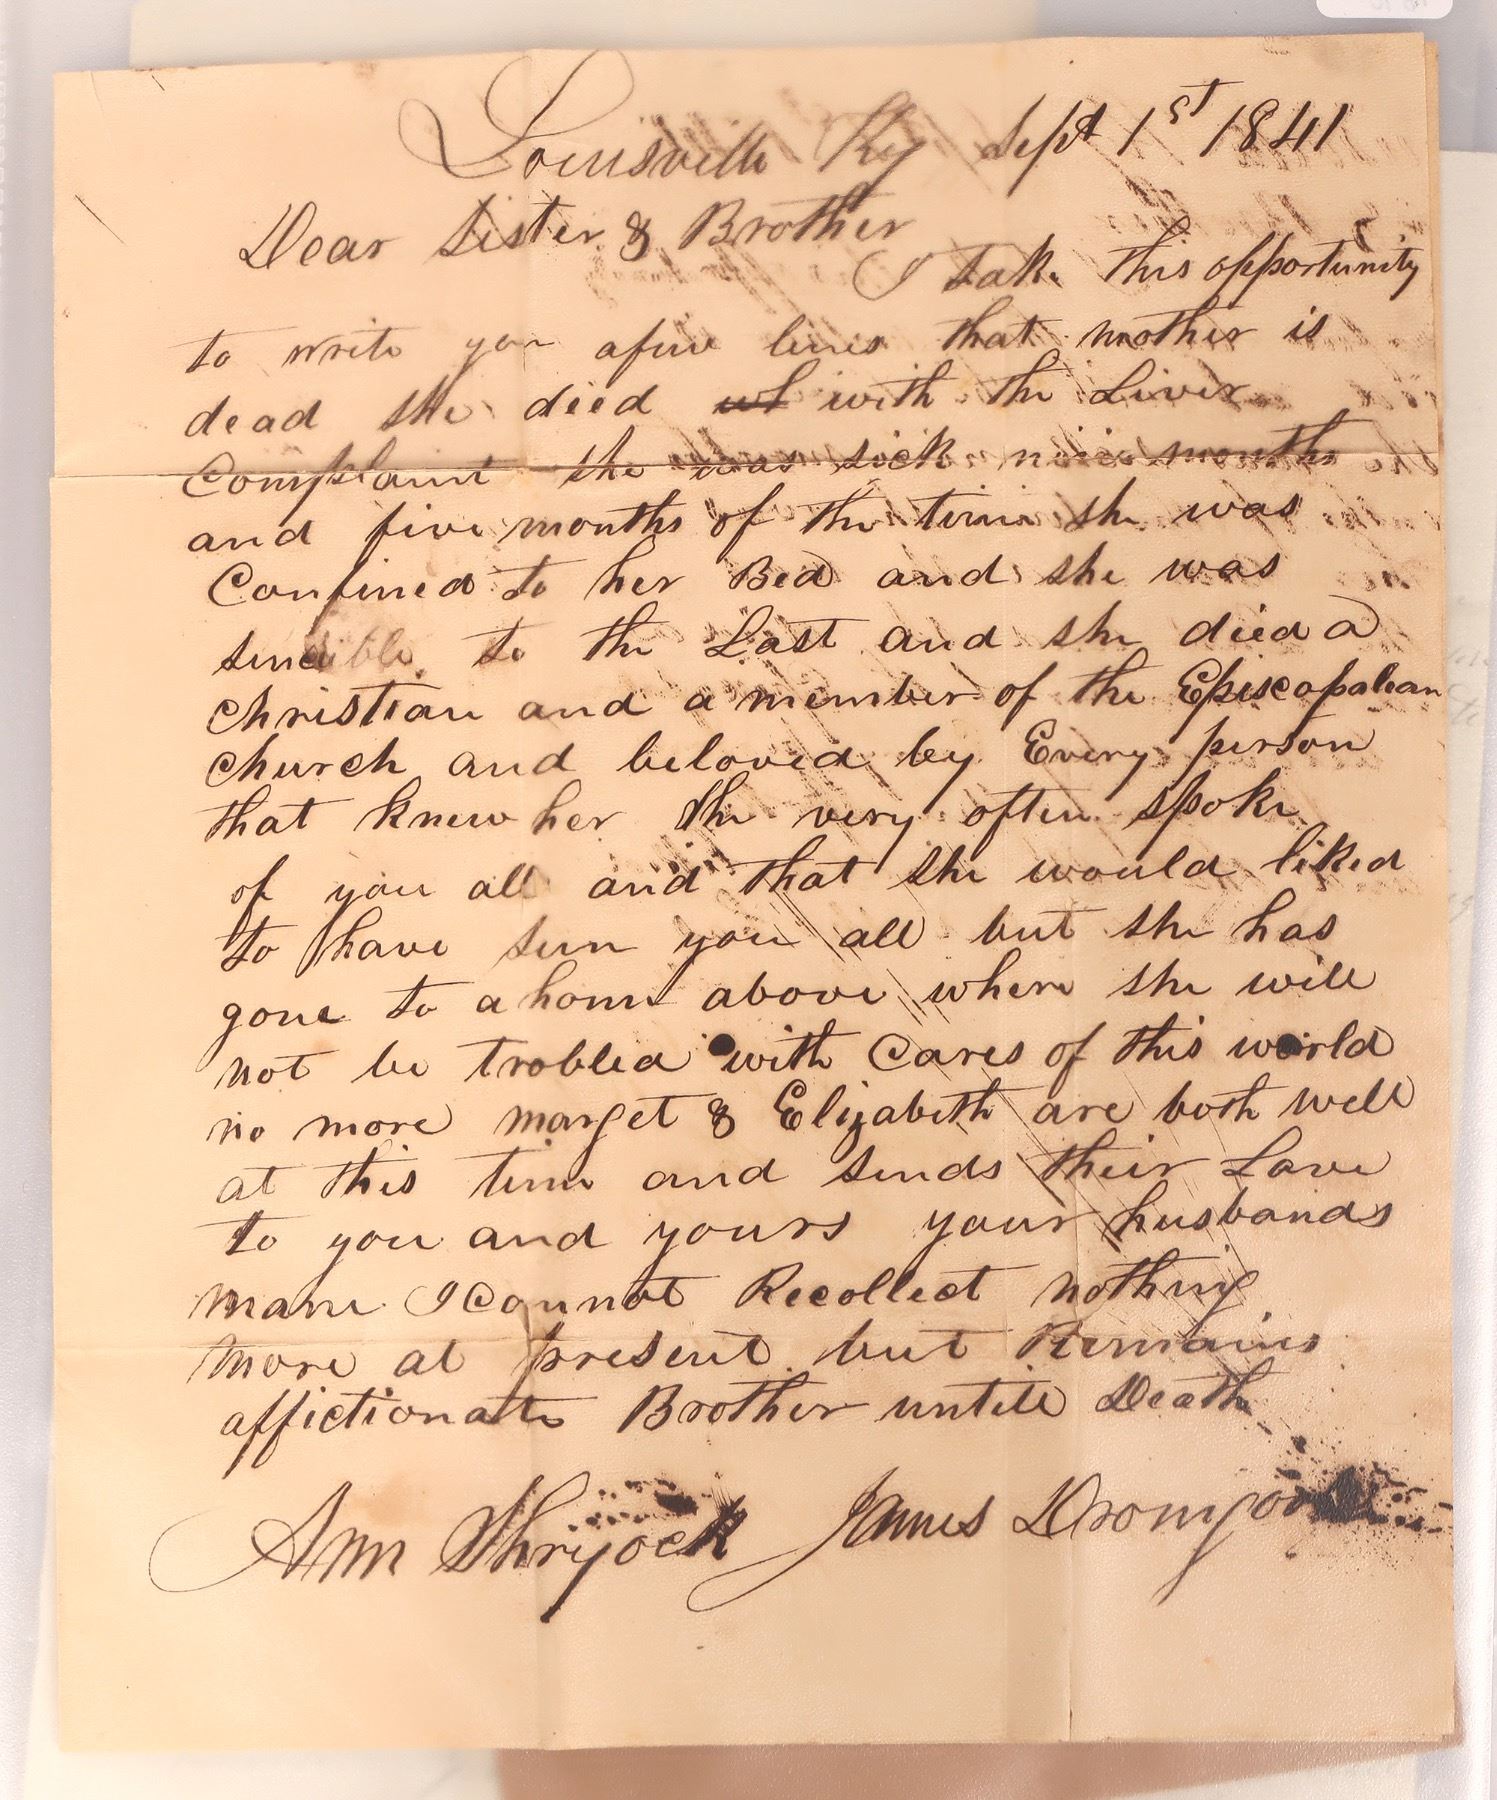 Louisville Ky Sept 1st 1841
Dear Sister & Brother
I take this opportunity
to write you afiew lines that mother is
dead she died with the Liver
Complaint she was sick nine months
and five months of the time she was
Confined to her Bed and she was
sencible to the Last and she died a
Christian and a member of the Episcopalean
Church and beloved by Every person
that knew her She very often spoke
of you all and that she would liked
to have seen you all but she has
gone to a home above where she will
not be trobled with Cares of this world
no more marget & Elizabeth are both well
at this time and sends their Love
to you and yours your husbands
mame I Cannot Recollect nothing
more at present but Remains
affictionate Brother untill Death
Ann Shryock James